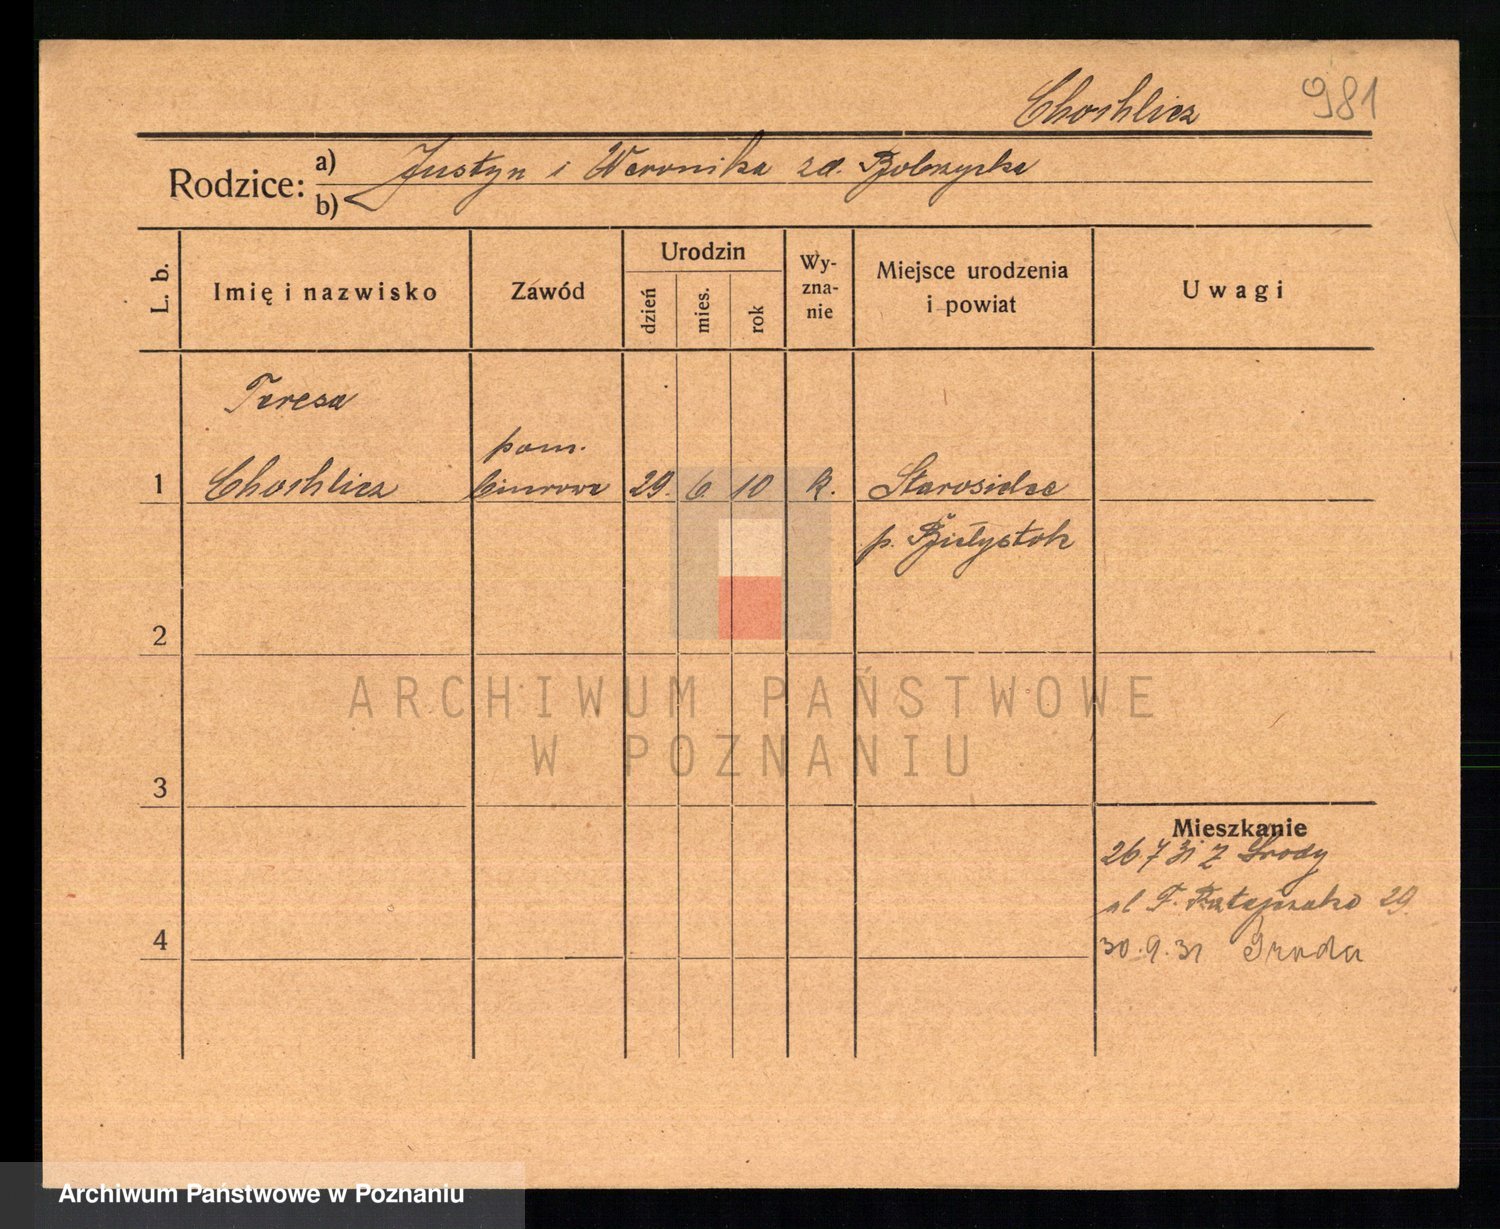 Chochlicz 981
Rodzice: a) Justyn i Weronika zd.
b)
L. b. Imię i nazwisko Zawód Urodzin dzień mies. rok Wy-zna-nie Miejsce urodzenia i powiat Uwagi
Teresa
pom.
1 Chochlicz biurowa 29. 6. 10 k. Starosielce
p. Białystok
2
ARCHIWUM PAŃSTWOWE
W POZNANIU
3
Mieszkanie
26 7 31 z Środy
ul F. Ratajczaka 29.
4 30.9.31 Środa
Archiwum Państwowe w Poznaniu